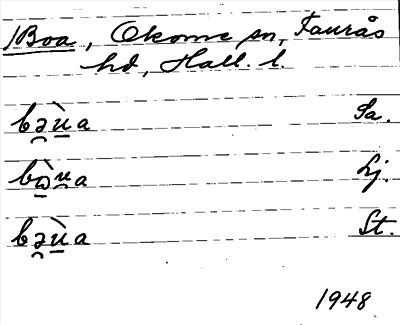 /Boa, Okome sn, Faurås
hd, Hall. l.
bə̯̀u̱a Sa.
bə̯̀u̱a Lj.
bə̯̀u̱a St.
1948